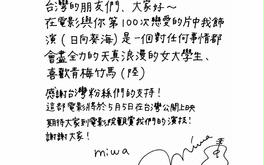 台灣的朋友們、大家好～
在電影與你第100次戀愛的片中我飾
演(日向葵海)是一個對任何事情都
會盡全力的天真浪漫的女大學生、
喜歡青梅竹馬(陸)
感謝台灣粉絲們的支持！
這部電影將於5月5日在台灣公開上映
期待大家到電影院觀賞我們的演技！
謝謝大家！
miwa
miwa